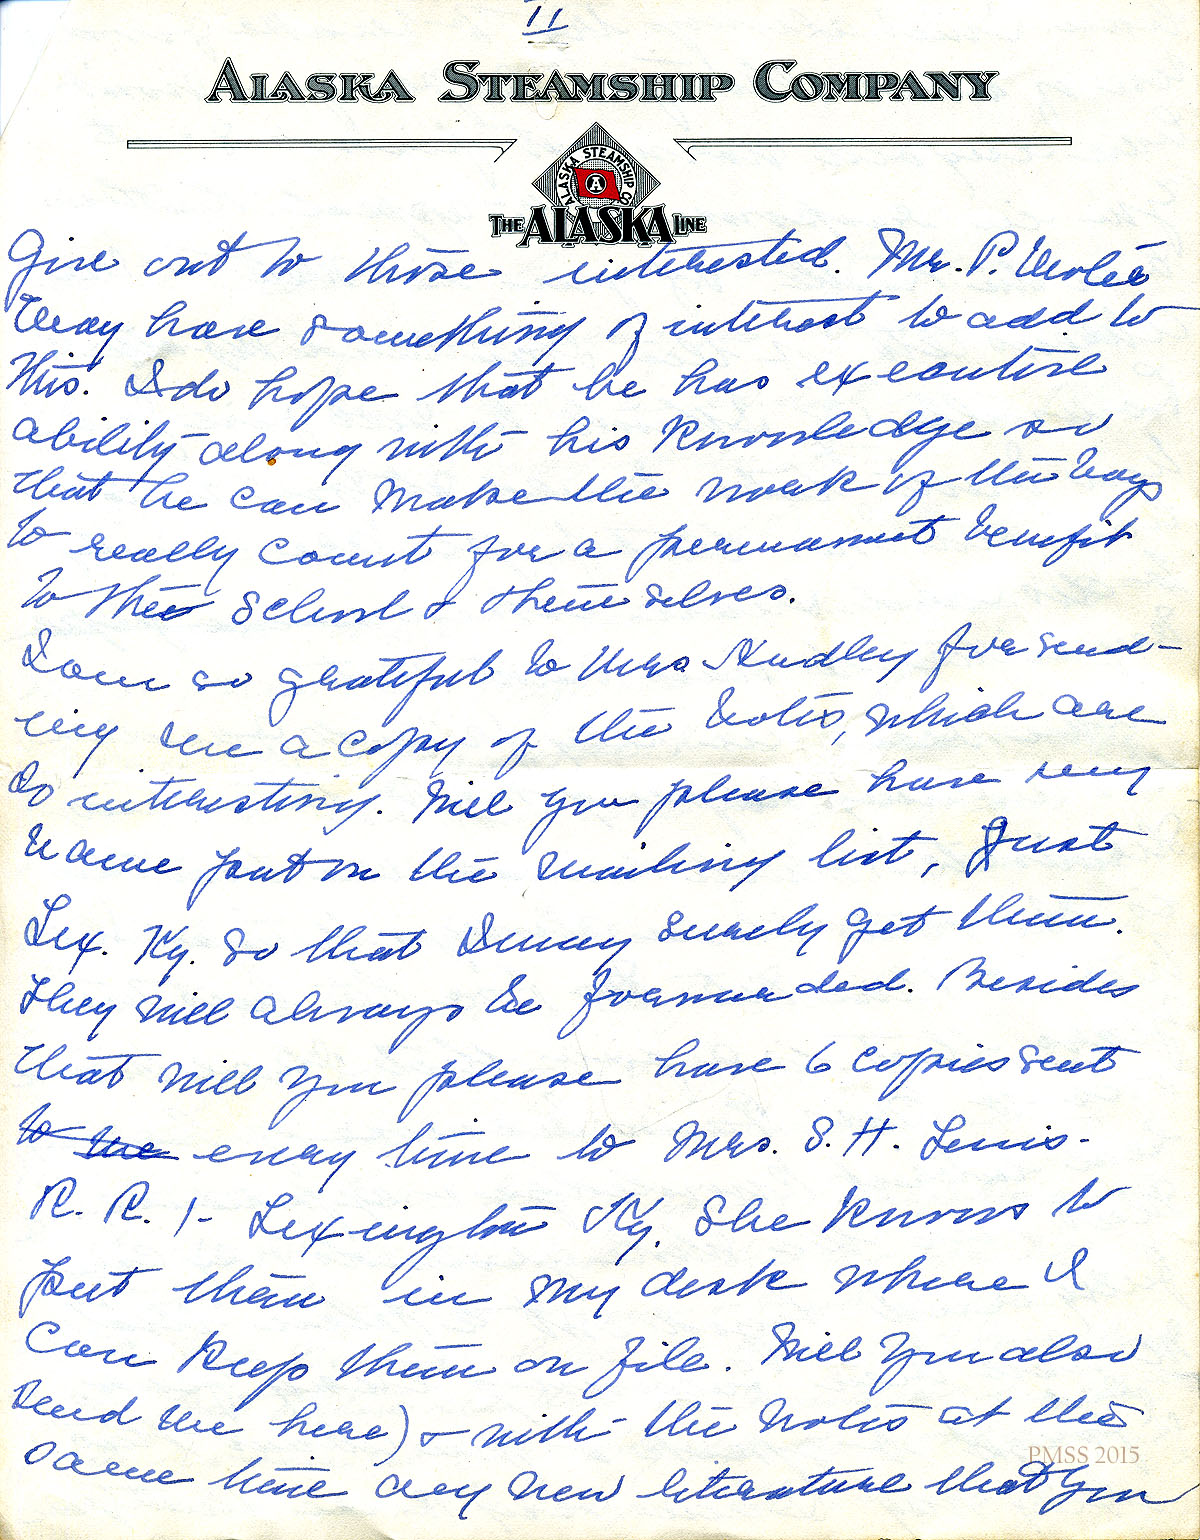 II
ALASKA STEAMSHIP COMPANY
ALASKA STEAMSHIP CO
A
THE ALASKA LINE
Give out to those interested. Mr. P.
may have something of interest to add to
this. I do hope that he has executive
ability along with his knowledge so
that he can make the work of the boys
to really count for a permanent benefit
to the School & themselves.
I am so grateful to Mrs Hadley for send-
ing me a copy of the Notes, which are
so interesting. Will you please have my
name put on the mailing list, Just
Lex. Ky. so that I may surely get them.
They will always be forwarded. Besides
that will you please have 6 copies sent
to me every time to Mrs. S. H. Lewis-
R. R. 1- Lexington Ky. She knows to
put them in my desk where I
can keep them on file. Will you also
send me here) & with the Notes at the
same time any new literature that you
PMSS 2015